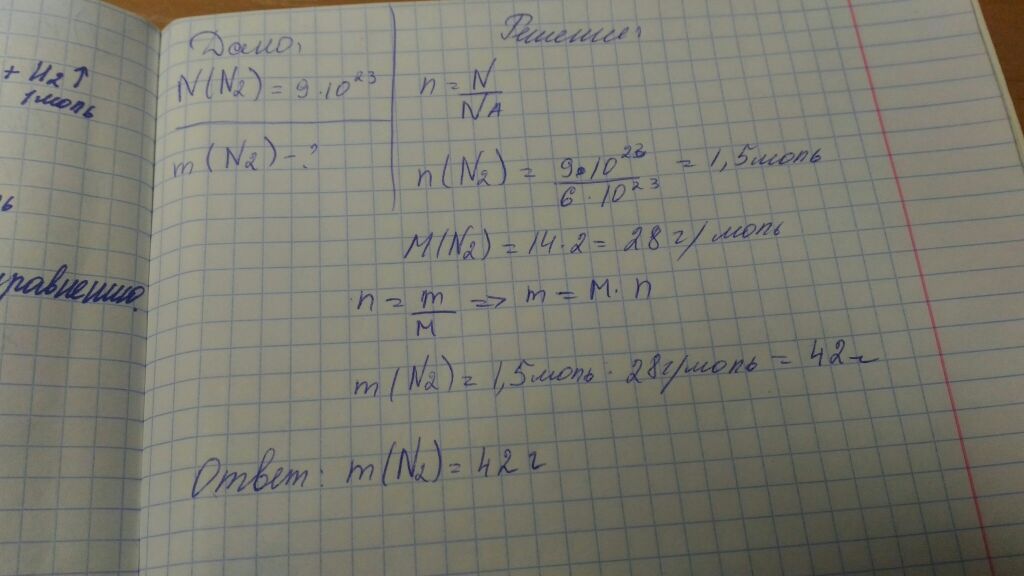 + H2↑
1 моль
ь
уравнению
Дано:
N(N2) = 9·10^23
m(N2) - ?
Решение:
n = N/NA
n(N2) = 9·10^23 / 6·10^23 = 1,5 моль
M(N2) = 14·2 = 28 г/моль
n = m/M => m = M·n
m(N2) = 1,5 моль · 28 г/моль = 42 г
Ответ: m(N2) = 42 г